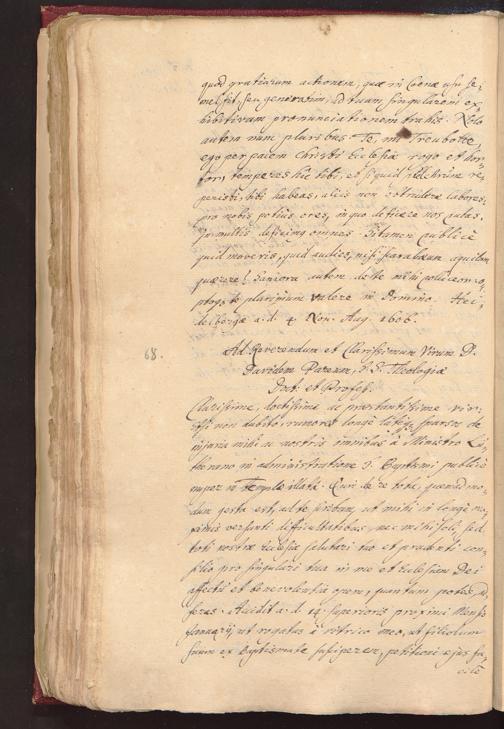 quod gratiarum actionem, quæ in Coenæ usu se,
mel fit, seu generatim, ad tuam singularem ex,
hibitivam pronunciationem trahis. Nolo
autem nunc pluribus. Te, mi Treubotte,
ego per pacem Christi Ecclesiæ rogo et hor,
tor, temperes hic tibi, et si quid
peristi, tibi habeas, aliis non obtrudere labores,
pro nobis potius ores, in quo deficere nos putas.
In multis desicimus omnes. Si tamen publicè
quid moveris, quid audies, nisi scarabæum aquilam
quærere! Saniora autem de te mihi polliceor, o,
ptoq; te plurimum valere in Domino. Hei,
delbergæ a. d. 4. Non. Aug. 1606.
68.
Ad Reverendum et Clarissimum Virum D.
Davidem Pareum, S. S. Theologiæ
Doct. et Profess.
Clarissime, doctissime ac præstantissime vir.
Etsi non dubito, rumores longè latéq; sparsos de
injuria mihi ac nostris omnibus à Ministro Lu,
therano in administratione S. Baptismi publicè
nuper in Templo illata: Quin de re tota, quemadmo,
dum gesta est, ad te scribam, ut mihi in longè ma,
ximis versanti difficultatibus, nec mihi soli, sed
toti nostræ Ecclesiæ salutari tuo et prudenti con,
silio pro singulari tua in me et Ecclesiam Dei
affectu et benevolentia opem, quantum potes,
feras. Accidit a. d. 14. superioris proximi Mensis
Januarij, ut rogatus à vitrico meo, ut filiolum
suum ex Baptismate susciperem, petitioni ejus fa,
cilè